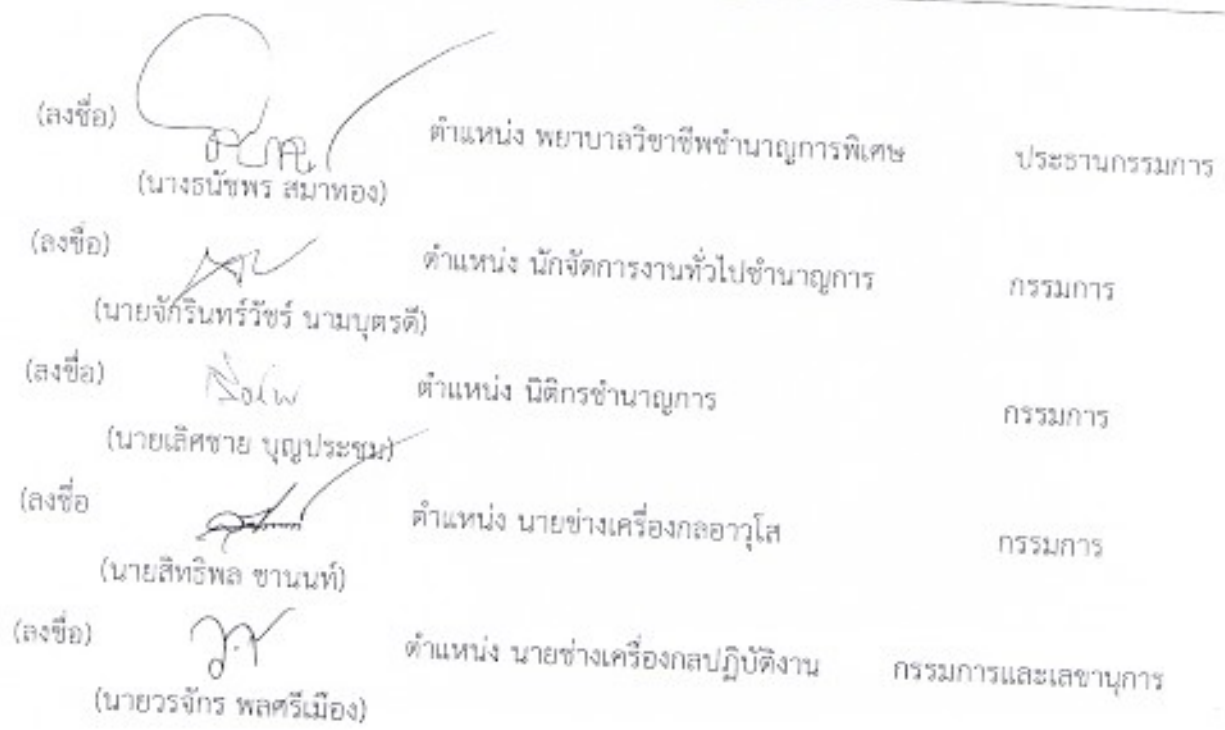 (ลงชื่อ) ตำแหน่ง พยาบาลวิชาชีพชำนาญการพิเศษ ประธานกรรมการ
(นางธนัชพร สมาทอง)
(ลงชื่อ) ตำแหน่ง นักจัดการงานทั่วไปชำนาญการ กรรมการ
(นายจักรินทร์วัชร์ นามบุตรดี)
(ลงชื่อ) ตำแหน่ง นิติกรชำนาญการ กรรมการ
(นายเลิศชาย บุญประชม)
(ลงชื่อ ตำแหน่ง นายช่างเครื่องกลอาวุโส กรรมการ
(นายสิทธิพล ชานนท์)
(ลงชื่อ) ตำแหน่ง นายช่างเครื่องกลปฏิบัติงาน กรรมการและเลขานุการ
(นายวรจักร พลศรีเมือง)